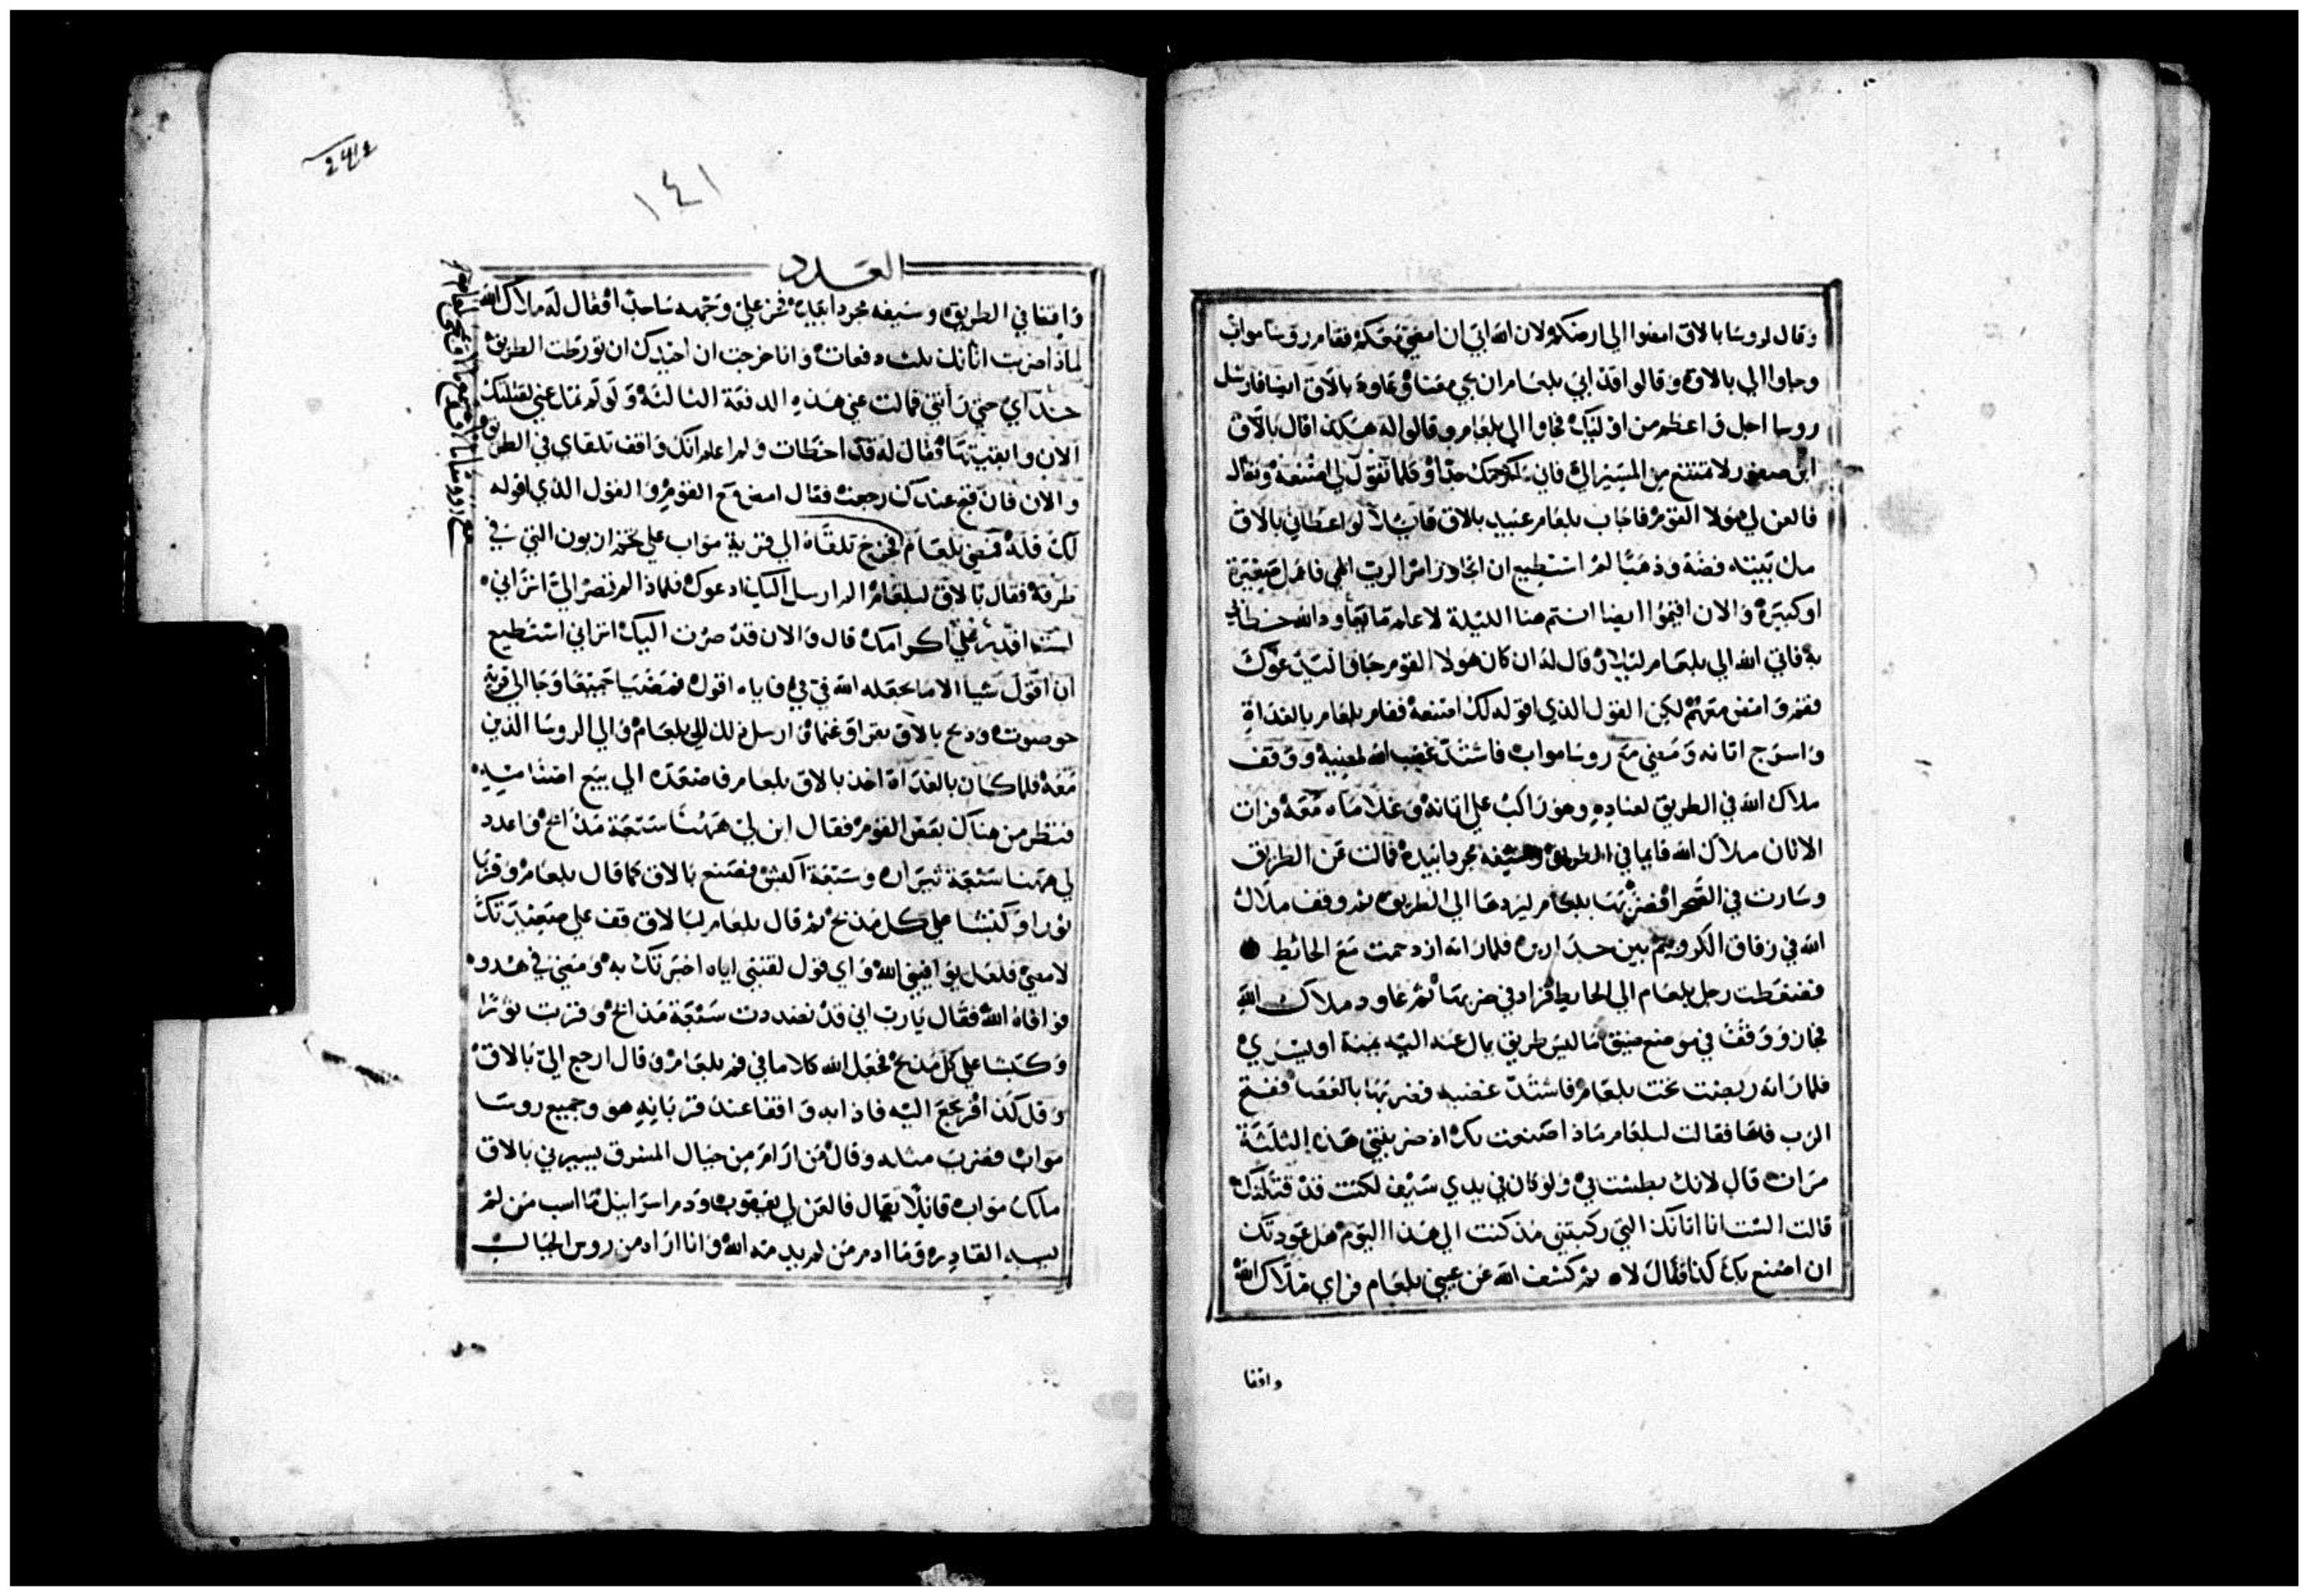 وقال لروسا بالاق امضوا الي ارضكم لان الله ابي ان امضي معكم فقام روسا مواب
وجاوا الي بالاق وقالوا قد ابي بلعام ان يجي معنا فعاود بالاق ايضا فارسل
روسا اجل واعظم من اوليك فجاوا الي بلعام وقالوا له هكذا قال بالاق
ابن صفور لا تمتنع من المسير الي فاني اكرمك جدا وكلما تقول لي اصنعه وتعال
فالعن لي هولا القوم فاجاب بلعام عبيد بالاق قايلا لو اعطاني بالاق
مل بيته فضة وذهبا لم استطيع ان اتجاوز امر الرب الهي فاعمل صغيرة
او كبيرة والان اقيموا ايضا انتم هنا الليلة لاعلم ما يعاود الله خطابي
به فاتي الله الي بلعام ليلا وقال له ان كان هولا القوم جاوا ليدعوك
فقم وامض معهم لكن القول الذي اقوله لك اصنعه فقام بلعام بالغداة
واسرج اتانه ومضي مع روسا مواب فاشتد غضب الله لمضيه ووقف
ملاك الله في الطريق لعناده وهو راكب علي اتانه وغلاماه معه فرات
الاتان ملاك الله قايما في الطريق وسيفه مجردا بيده فمالت عن الطريق
وسارت في الصحرا فضربها بلعام ليردها الي الطريق ثم وقف ملاك
الله في زقاق الكروم بين جدارين فلما راته ازدحمت مع الحائط
فضغطت رجل بلعام الي الحايط فزاد في ضربها ثم عاود ملاك الله
فجاز ووقف في موضع ضيق ما ليس طريق يمال عند اليه يمنة او يسري
فلما راته ربضت تحت بلعام فاشتد غضبه فضربها بالعصا ففتح
الرب فاها فقالت لبلعام ماذا صنعت بك اذ ضربتني هذه الثلثة
مرات قال لانك بطشت بي ولو كان في يدي سيف لكنت قد قتلتك
قالت الست انا اتانك التي ركبتني مذ كنت الي هذا اليوم هل عودتك
ان اصنع بك كذا فقال لا ثم كشف الله عن عيني بلعام فراي ملاك الله
واقفا
١٤١
العدد
واقفا في الطريق وسيفه مجردا بيده فخر علي وجهه ساجدا فقال له ملاك الله
لماذا ضربت اتانك ثلث دفعات وانا خرجت ان احيدك ان تورطت الطريق
حداي حتي راتني فمالت عني هذه الدفعة الثالثة ولو لم تمتا عني لقتلتك
الان وابقيتها فقال له قد اخطات ولم اعلم انك واقف تلقاي في الطريق
والان فان قبح عندك رجعت فقال امض مع القوم والقول الذي اقوله
لك قله فمضي بلعام فخرج تلقاه الي قرية مواب علي تخم ارنون التي في
طرفه فقال بالاق لبلعام الم ارسل اليك ادعوك فلماذا لم تصر الي اتراني
لست اقدر علي اكرامك قال والان قد صرت اليك اتراني استطيع
ان اقول شيا الا ما يجعله الله في في فاياه اقول فمضيا جميعا وجا الي قرية
حوصوت وذبح بالاق بقرا وغنما وارسل ذلك الي بلعام والي الروسا الذين
معه فلما كان بالغداة اخذ بالاق بلعام فاصعده الي بيع اصنامه
فنظر من هناك بعض القوم فقال ابن لي ههنا سبعة مذابح واعدد
لي ههنا سبعة ثيران وسبعة اكبش فصنع بالاق كما قال بلعام وقربا
ثورا وكبشا علي كل مذبح ثم قال بلعام لبالاق قف علي صعيدتك
لامضي فلعل يوافيني الله واي قول لقنني اياه اخبرتك به ومضي في هدوه
فوافاه الله فقال يارب اني قد نضدت سبعة مذابح وقربت ثورا
وكبشا علي كل مذبح فجعل الله كلاما في فم بلعام وقال ارجع الي بالاق
وقل كذا فرجع اليه فاذا به واقفا عند قربانه هو وجميع روسا
مواب فضرب مثله وقال من ارام من جبال المشرق يسيرني بالاق
ملك مواب قايلا تعال فالعن لي يعقوب وذم اسراييل ما اسب من لم
يسبه القادر وما اذم من لم يذمه الله وانا اراه من روس الجبال